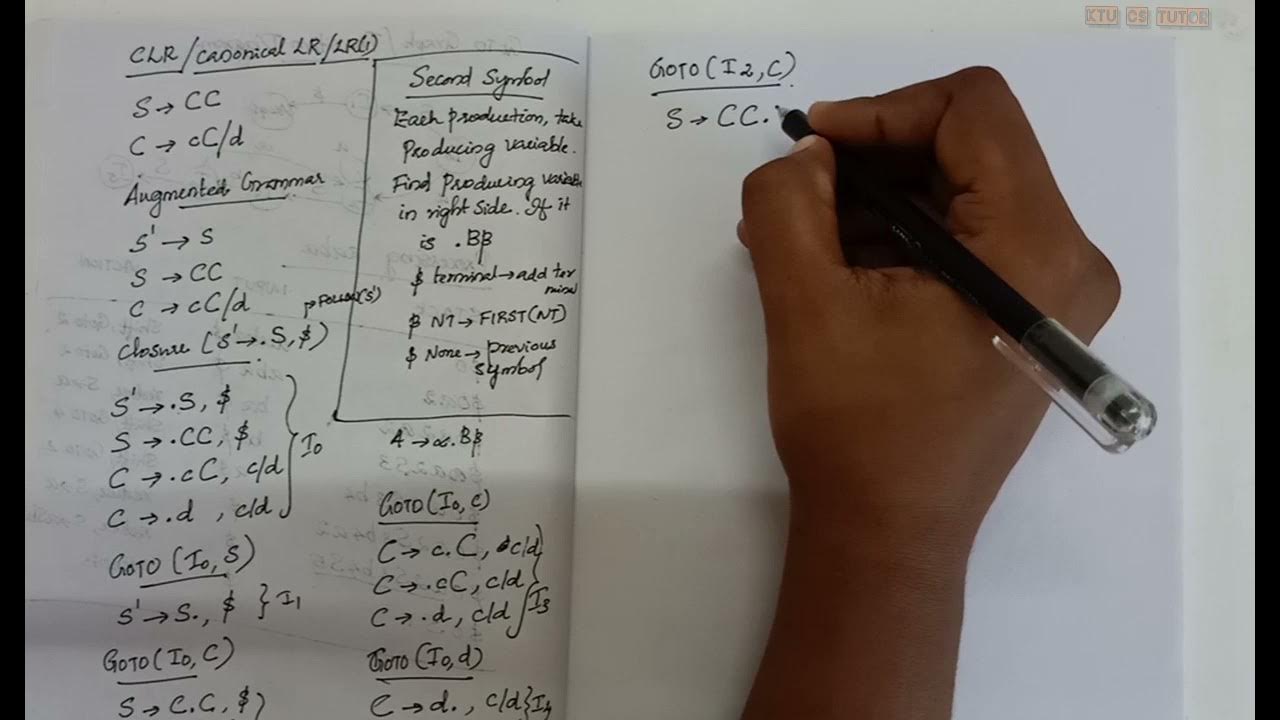 KTU CS TUTOR
CLR/canonical LR/LR(1)
S → CC
C → cC/d
Augmented Grammar
S' → S
S → CC
C → cC/d
Follow(S')
Closure (S' → .S, $)
S' → .S, $
S → .CC, $
C → .cC, c/d
C → .d , c/d
I0
GOTO (I0, S)
S' → S., $ } I1
GOTO (I0, C)
S → C.C, $
Second Symbol
Each production, take
Producing variable.
Find Producing variable
in right side. If it
is .Bβ
β terminal → add ter
minal
β NT → FIRST(NT)
β None → previous
symbol
A → α.Bβ
GOTO (I0, c)
C → c.C, c/d
C → .cC, c/d
C → .d, c/d
I3
GOTO (I0, d)
C → d., c/d } I4
GOTO (I2, C)
S → CC.